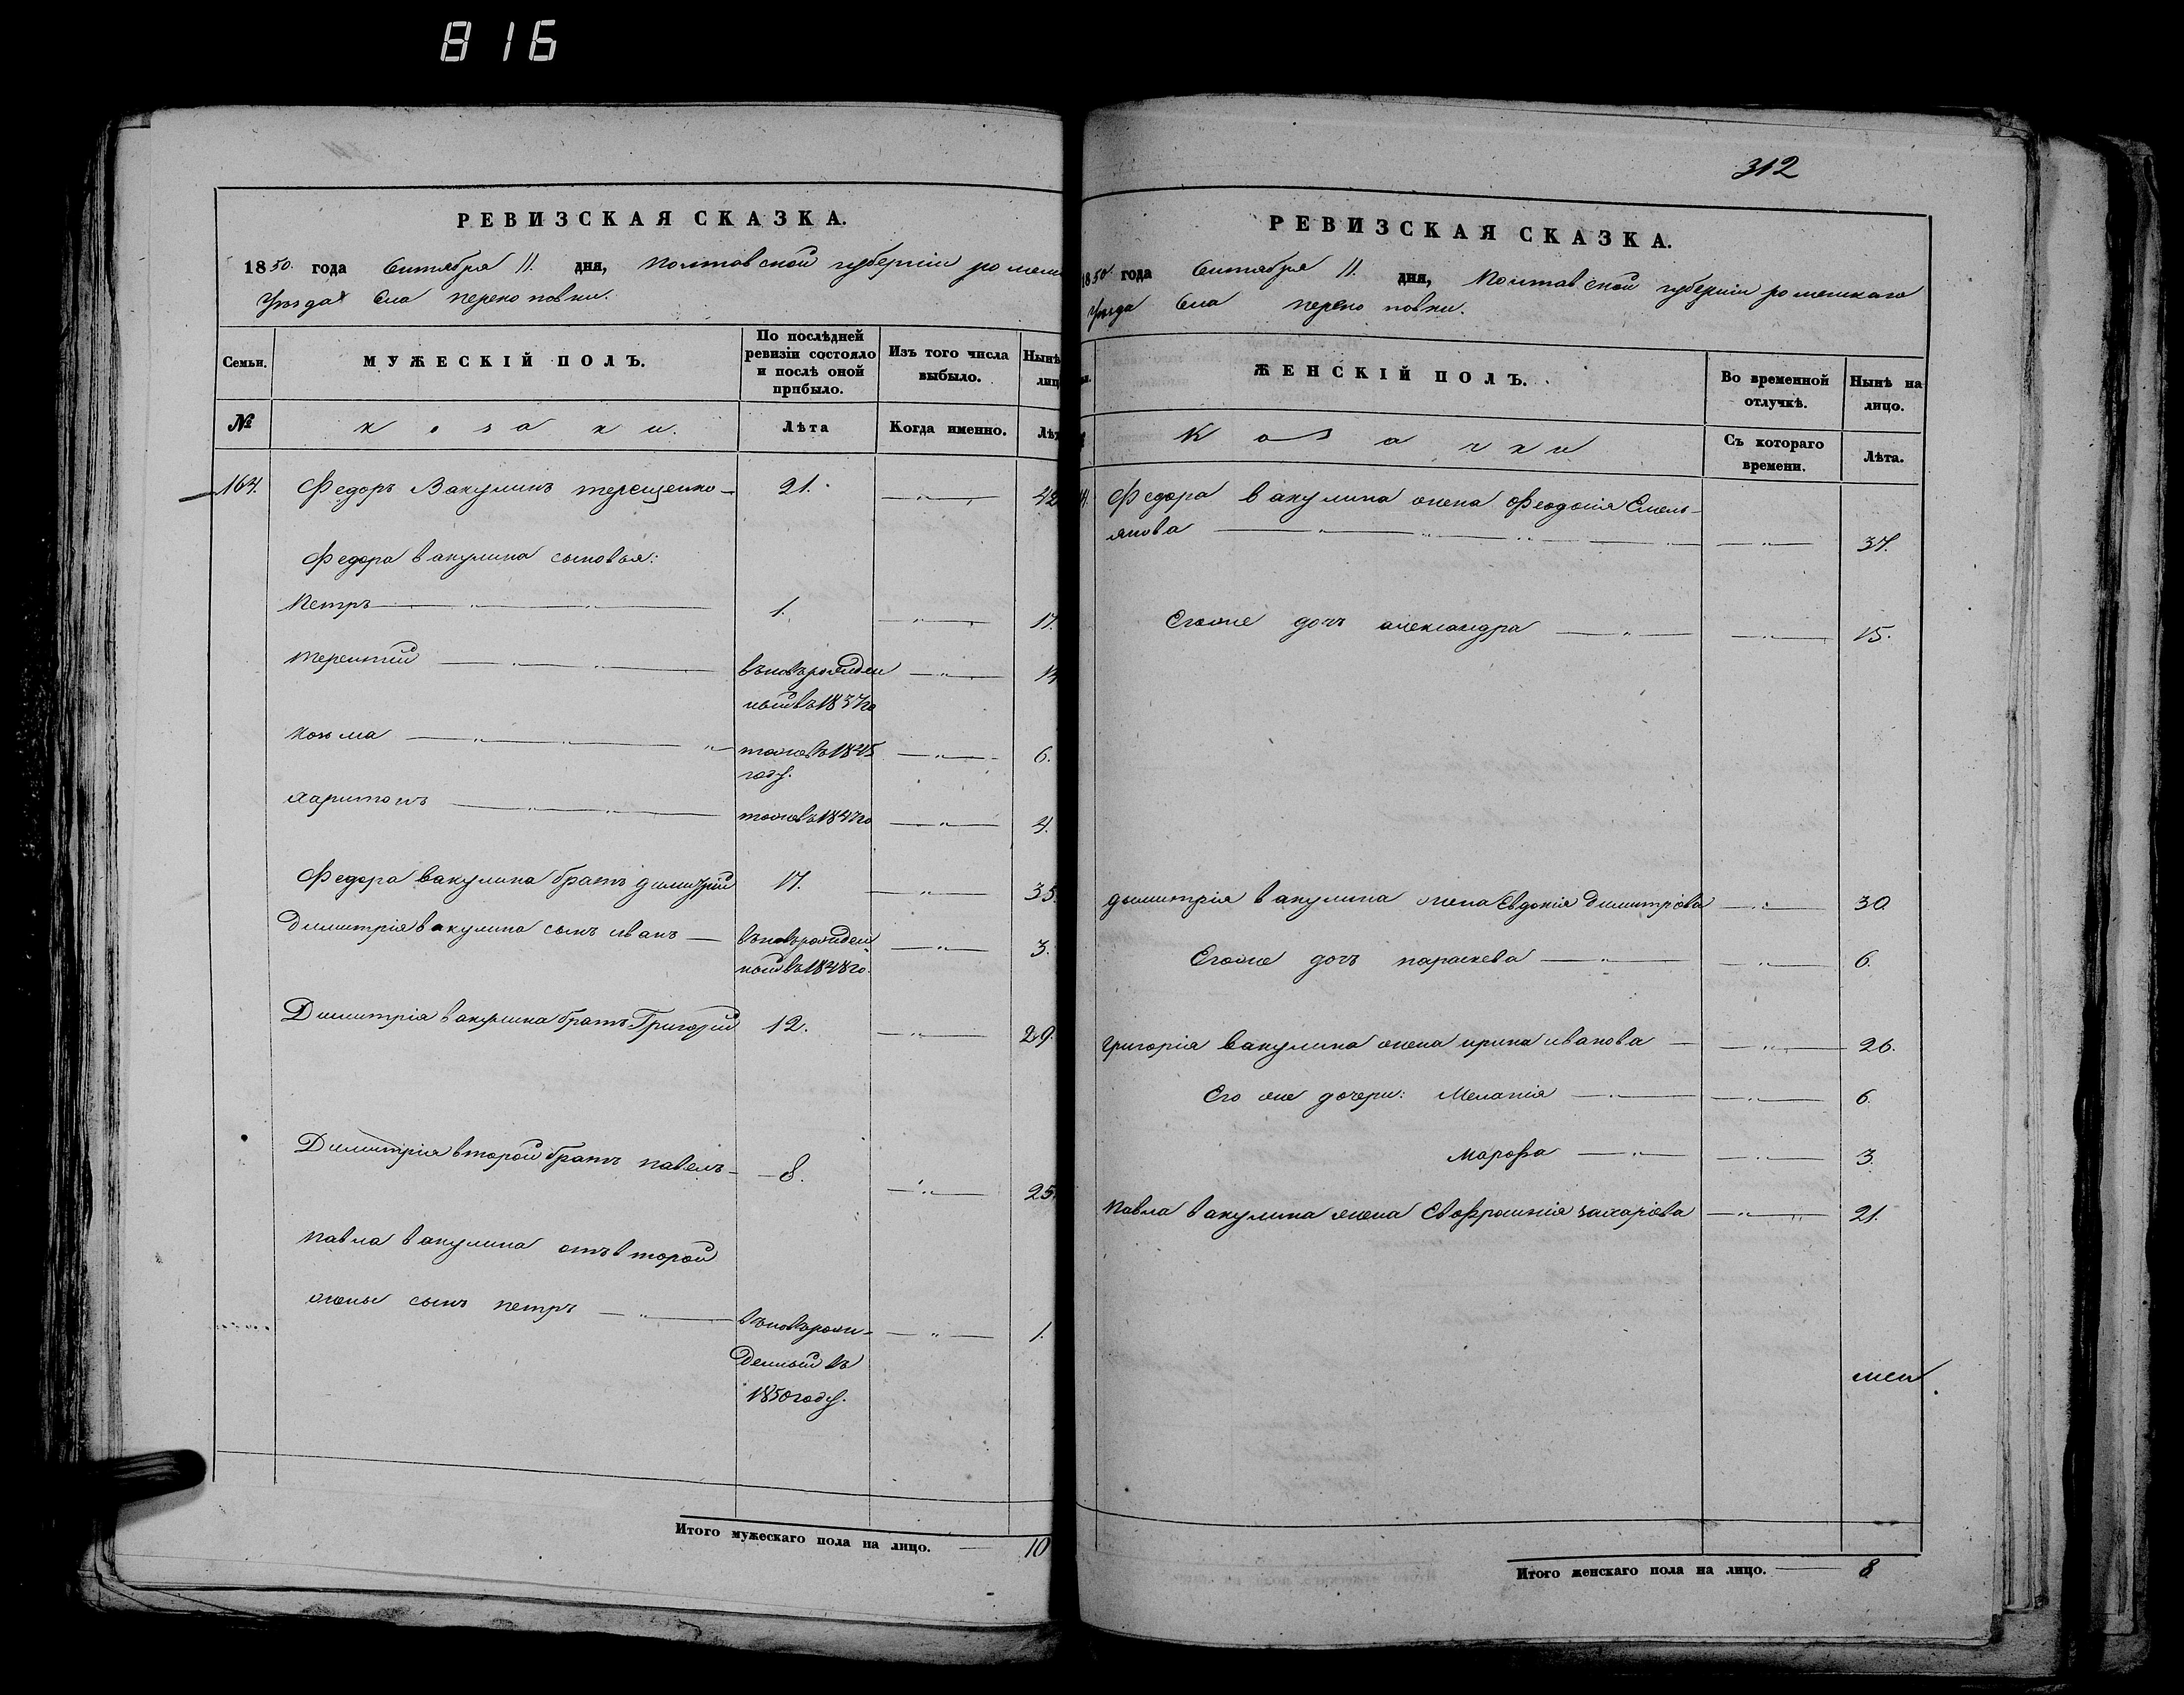 816
РЕВИЗСКАЯ СКАЗКА.
1850 года Сентября 11. дня, Полтавской губерніи ромен
Уѣзда Села перекоповки.
Семьи.
МУЖЕСКІЙ ПОЛЪ.
По послѣдней ревизіи состояло и послѣ оной прибыло.
Изъ того числа выбыло.
Нынѣ лиц
№
козаки.
Лѣта
Когда именно.
Лѣт
164. Федоръ Вакулинъ терещенко 21. 42
Федора вакулина сыновья:
Петръ 1. 17.
терентий въновьрожден 14
ныйвъ1837го
козьма тожевъ1845 6.
году.
харитонъ тожевъ1847го 4.
Федора вакулина братъ димитрій 17. 35.
димитрія вакулина сынъ иванъ вновьрожден 3.
ныйвъ1848го.
Димитрія вакулина братъ Григорий 12. 29.
Димитрія второй братъ павелъ 8. 25.
павла вакулина отъ второй
жены сынъ петръ вновьрож- 1.
денный въ
1850году.
Итого мужескаго пола на лицо. 10
312
РЕВИЗСКАЯ СКАЗКА.
1850 года Сентября 11. дня, Полтавской губерніи роменскаго
Уѣзда Села перекоповки.
ЖЕНСКІЙ ПОЛЪ.
Во временной отлучкѣ.
Нынѣ на лицо.
Козачки
Съ котораго времени.
Лѣта.
4. Федора вакулина жена Феодосія Емель-
янова 37.
Егоже дочь александра 15.
димитрія вакулина жена Евдокія Димитріева 30.
Егоже дочь параскева 6.
григорія вакулина жена ирина иванова 26.
Его же дочери: Меланія 6.
Марфа 3.
Павла вакулина жена Евфросинія захарьева 21.
Итого женскаго пола на лицо. 8